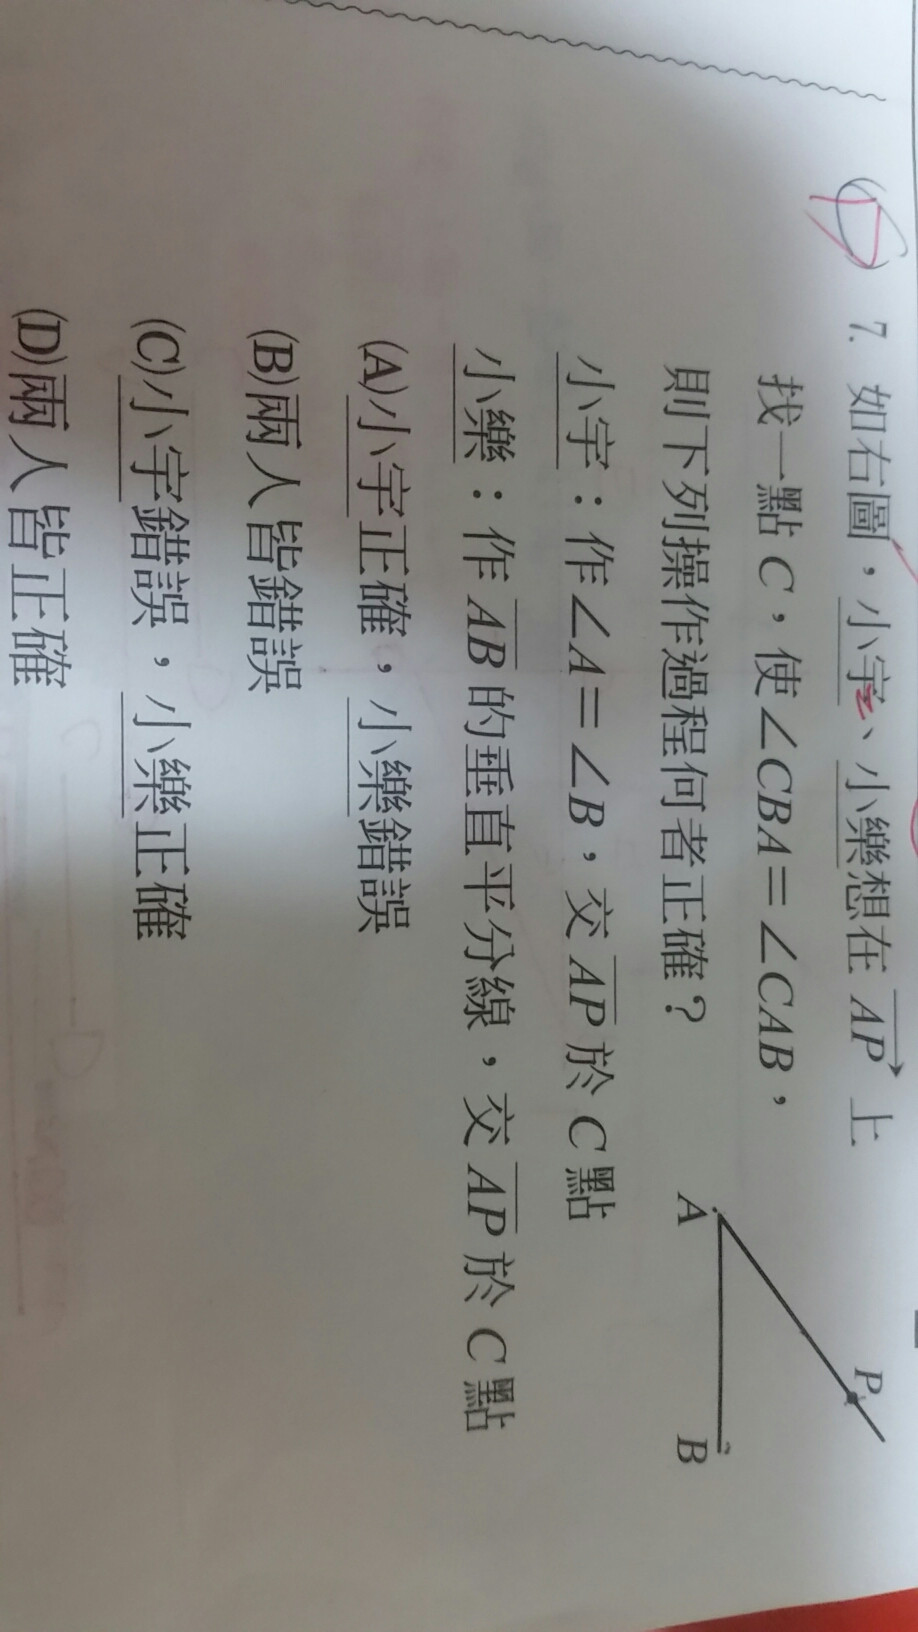 7. 如右圖，小宇、小樂想在 AP 上
找一點 C，使∠CBA＝∠CAB，
則下列操作過程何者正確？
小宇：作∠A＝∠B，交 AP 於 C 點
小樂：作 AB 的垂直平分線，交 AP 於 C 點
(A)小宇正確，小樂錯誤
(B)兩人皆錯誤
(C)小宇錯誤，小樂正確
(D)兩人皆正確
A
P
B